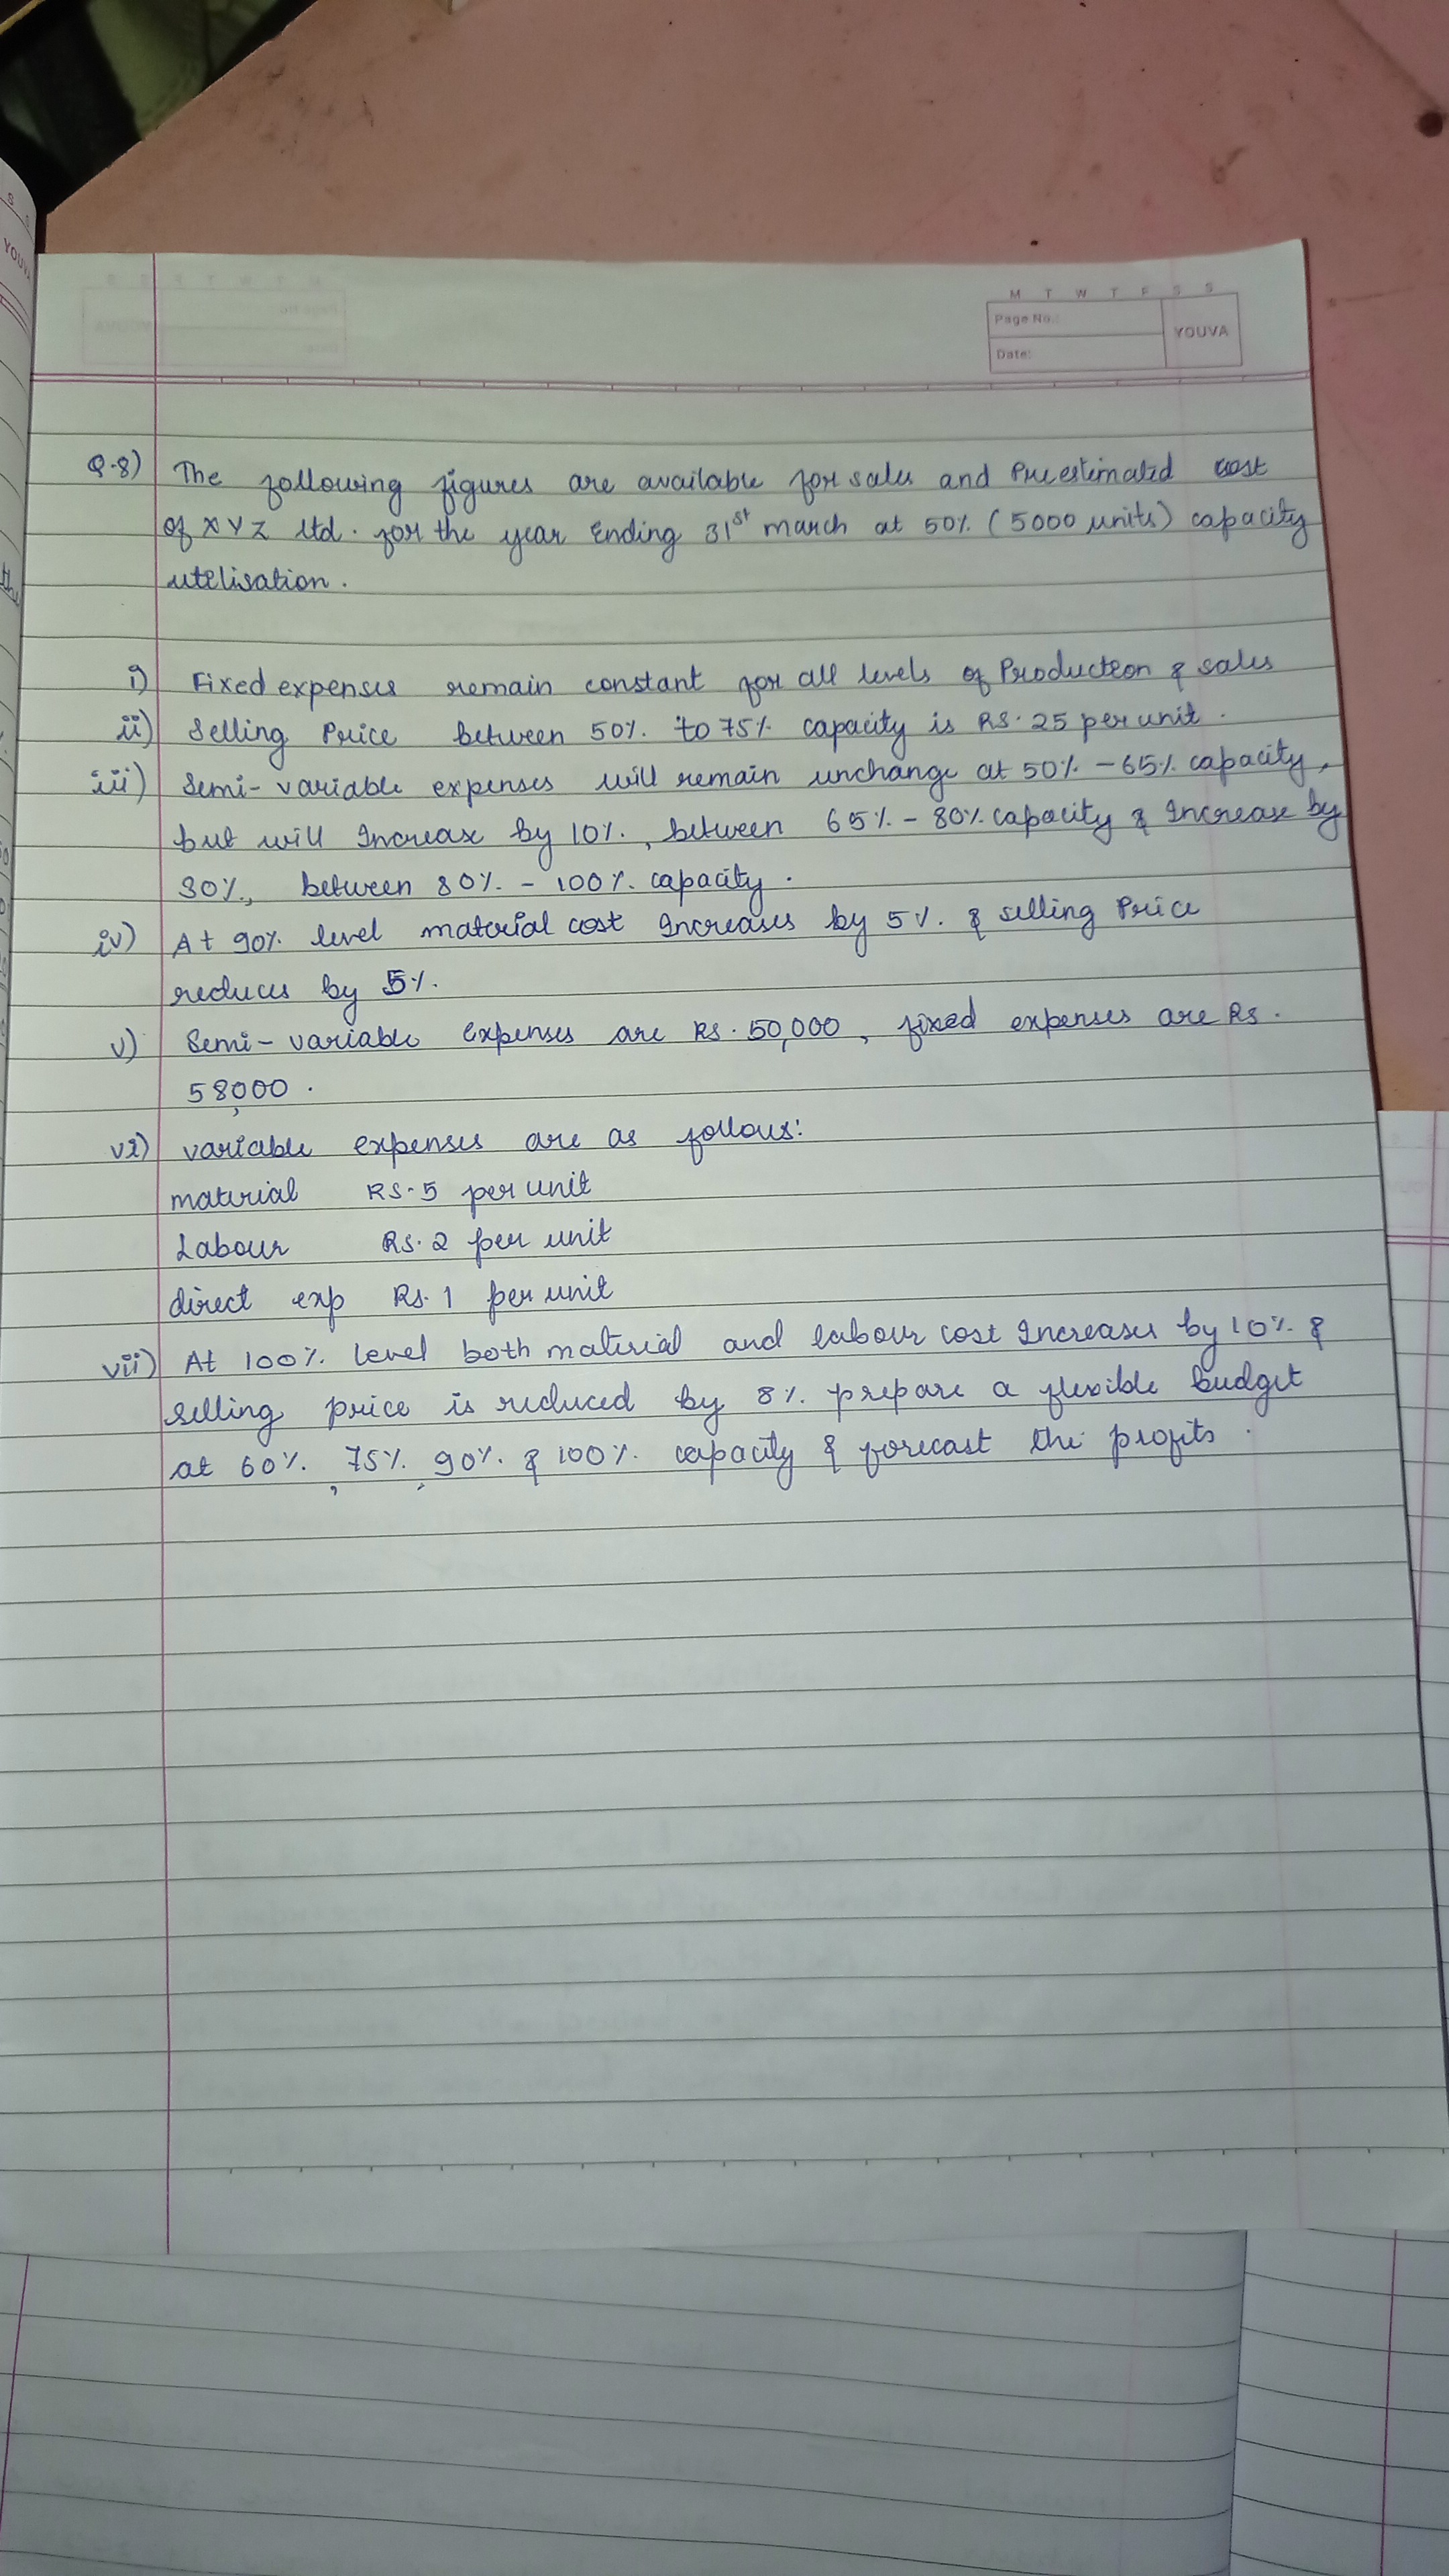 M T W T F S S
Page No.:
YOUVA
Date:
Q.8) The following figures are available for sales and Pre estimated cost
of XYZ Ltd. for the year Ending 31st march at 50% (5000 units) capacity
utelisation.
i) Fixed expenses remain constant for all levels of Production & sales
ii) Selling Price between 50% to 75% capacity is RS. 25 per unit.
iii) Semi-variable expenses will remain unchange at 50% - 65% capacity,
but will Increase by 10%, between 65% - 80% capacity & Increase by
30%, between 80% - 100% capacity.
iv) At 90% level material cost Increases by 5%. & selling Price
reduces by 5%.
v) Semi-variable expenses are RS. 50,000, fixed expenses are Rs.
58,000.
vi) variable expenses are as follows:
material RS. 5 per unit
Labour RS. 2 per unit
direct exp Rs. 1 per unit
vii) At 100% level both material and labour cost Increases by 10% &
selling price is reduced by 8% prepare a flexible budget
at 60%, 75%, 90% & 100% capacity & forecast the profits.